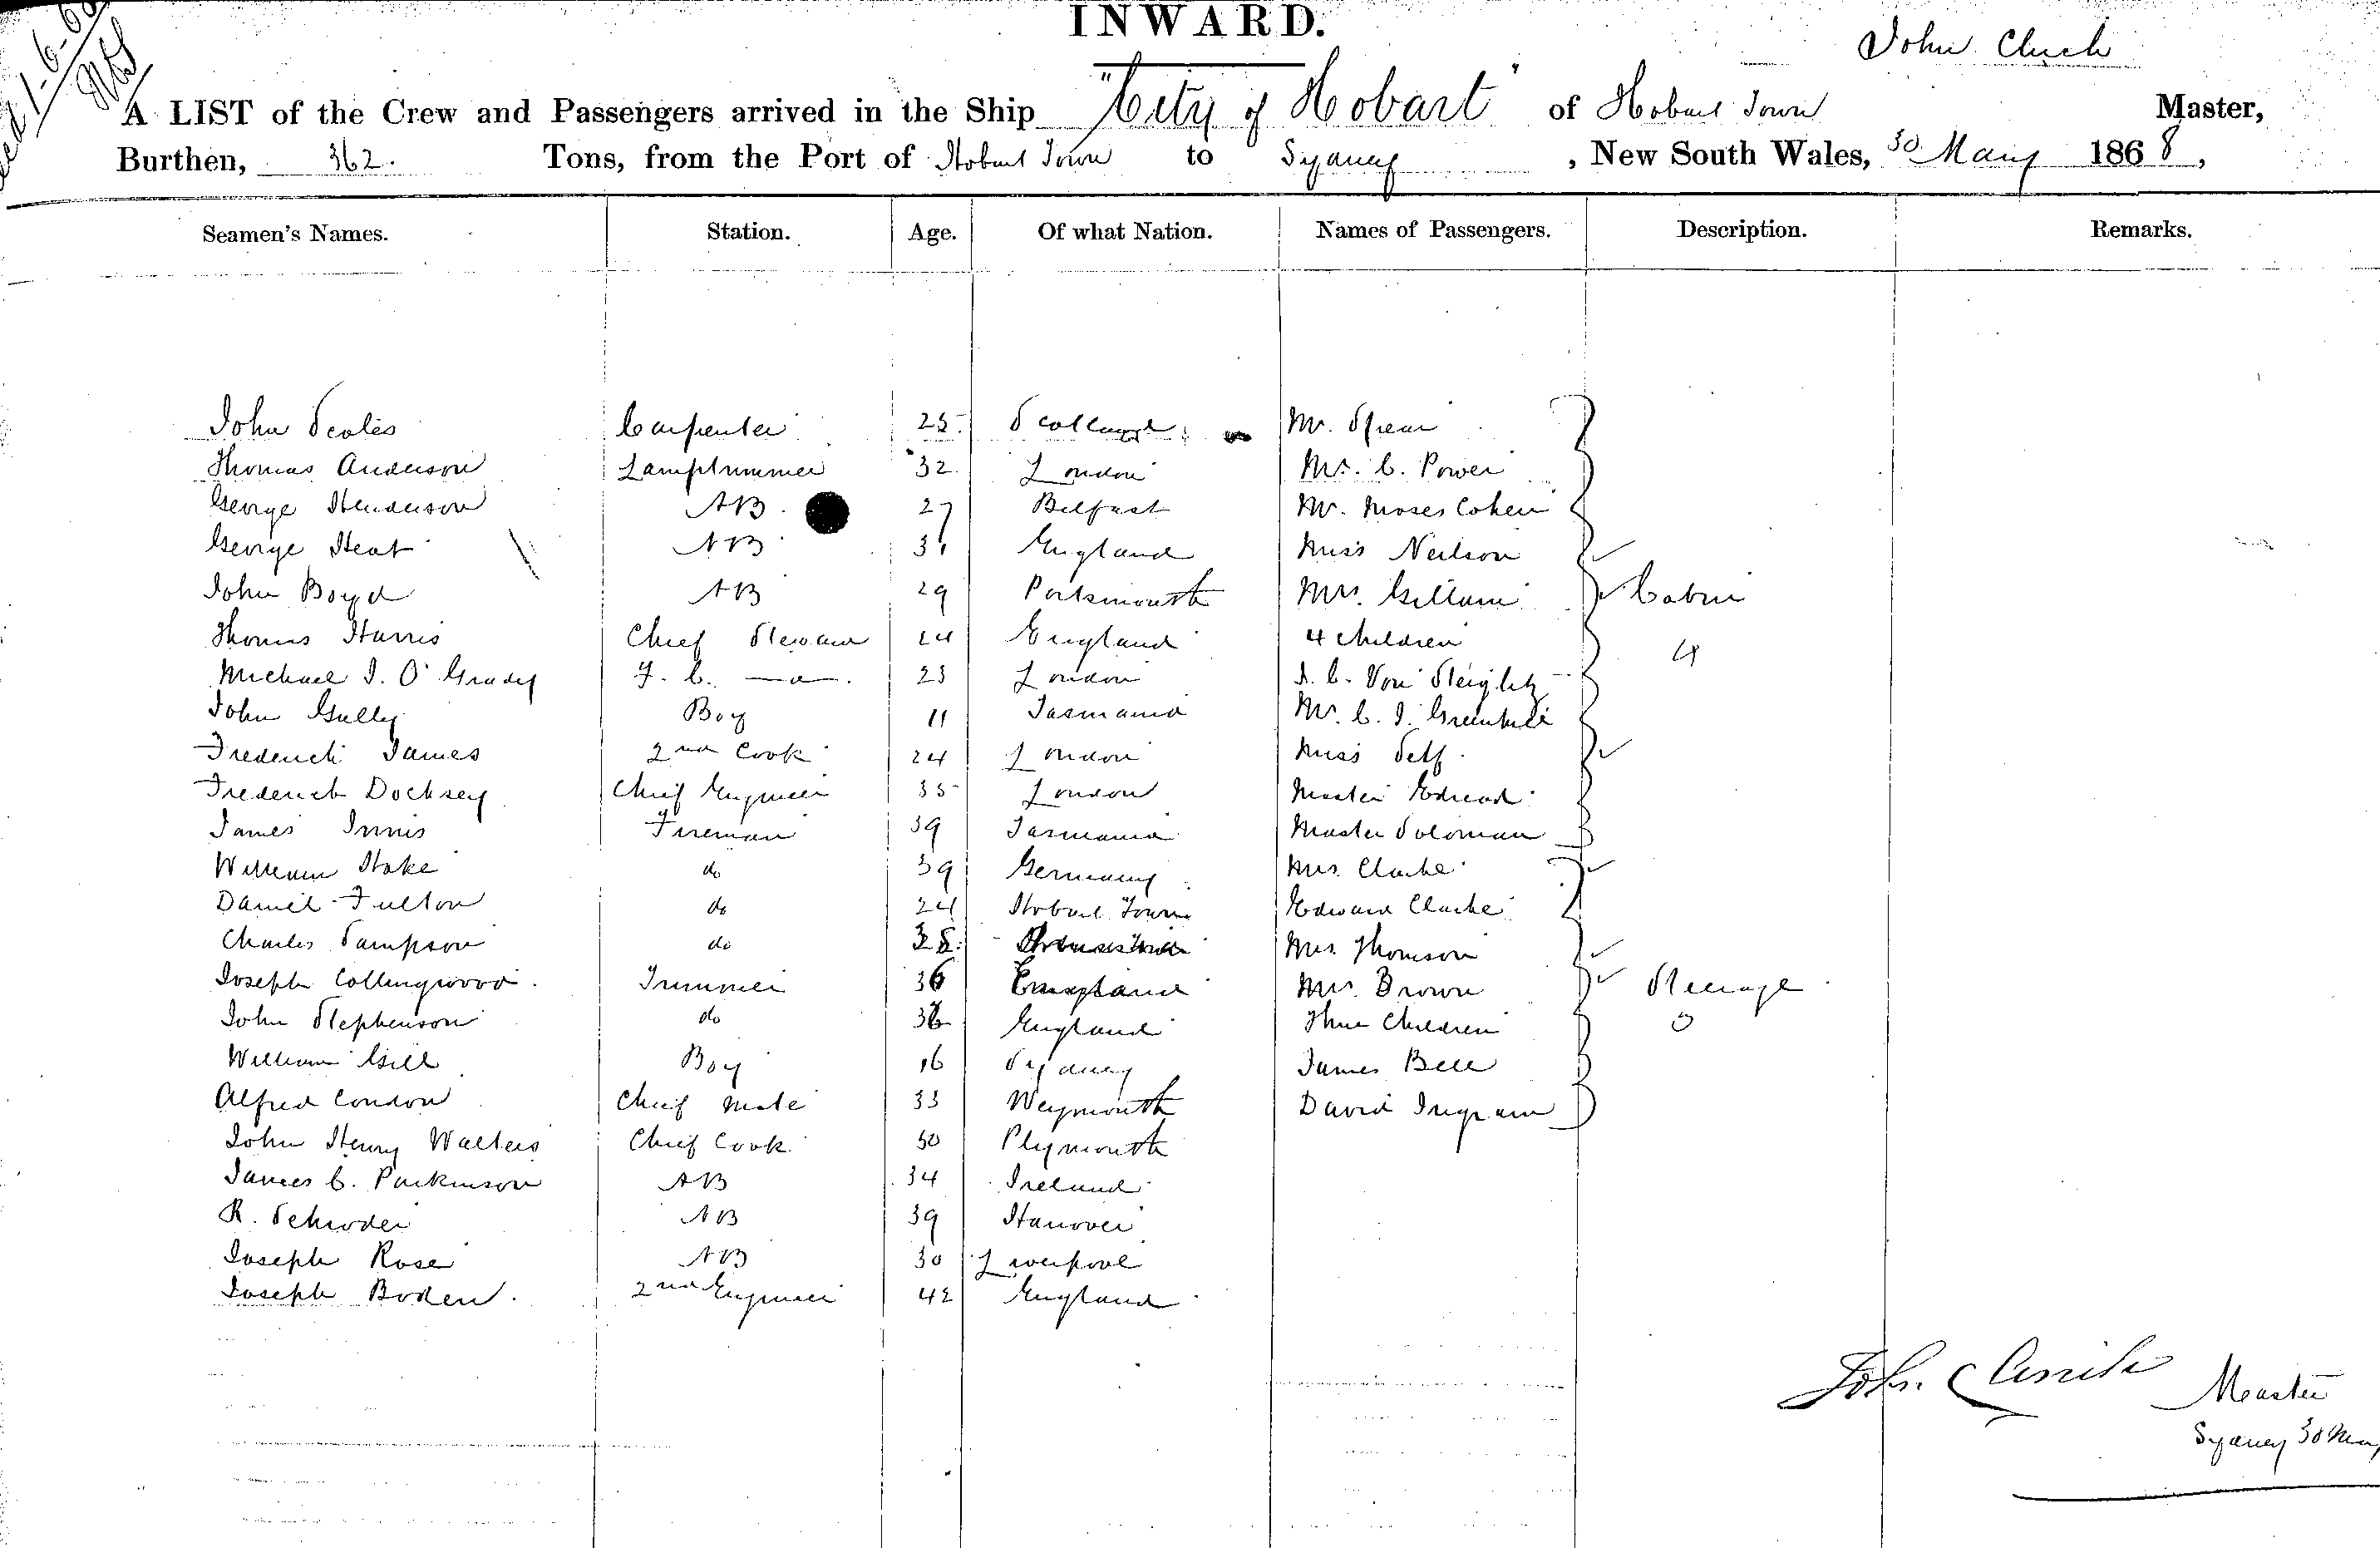 INWARD.
John Clinch
A LIST of the Crew and Passengers arrived in the Ship "City of Hobart" of Hobart Town Master,
Burthen, 362. Tons, from the Port of Hobart Town to Sydney, New South Wales, 30 May 1868,
Seamen's Names. Station. Age. Of what Nation. Names of Passengers. Description. Remarks.
John Scales Carpenter 25 Scotland Mr. Spear
Thomas Anderson Lamptrimmer 32 London Mr. C. Power
George Henderson AB 27 Belfast Mr. Moses Cohen
George Heat AB 31 England Miss Neilson
John Boyd AB 29 Portsmouth Mrs. Gillam Cabin
Thomas Harris Chief Steward 24 England 4 Children 4
Michael J. O'Grady F. C. —a—. 23 London J. C. Von Steiglitz
John Gully Boy 11 Tasmania Mr. C. J. Greenhill
Frederick James 2nd Cook 24 London Miss Self
Frederick Docksey Chief Engineer 35 London Master
James Innis Fireman 39 Tasmania Master Soloman
William Hake do 39 Germany Mrs. Clarke
Daniel Fulton do 24 Hobart Town Edward Clarke
Charles Sampson do Mrs Thomson
Joseph Collingwood. Trimmer 36 England Mrs. Brown Steerage
John Stephenson do England Three Children 3
William Gill Boy 16 Sydney James Bell
Alfred Condon Chief Mate 33 Weymouth David Ingram
John Henry Walters Chief Cook 50 Plymouth
James C. Parkinson AB 34 Ireland
R. Schroder AB 39 Hanover
Joseph Rose AB 30 Liverpool
Joseph Boden. 2nd Engineer 42 England
John Clinch Master
Sydney 30 May